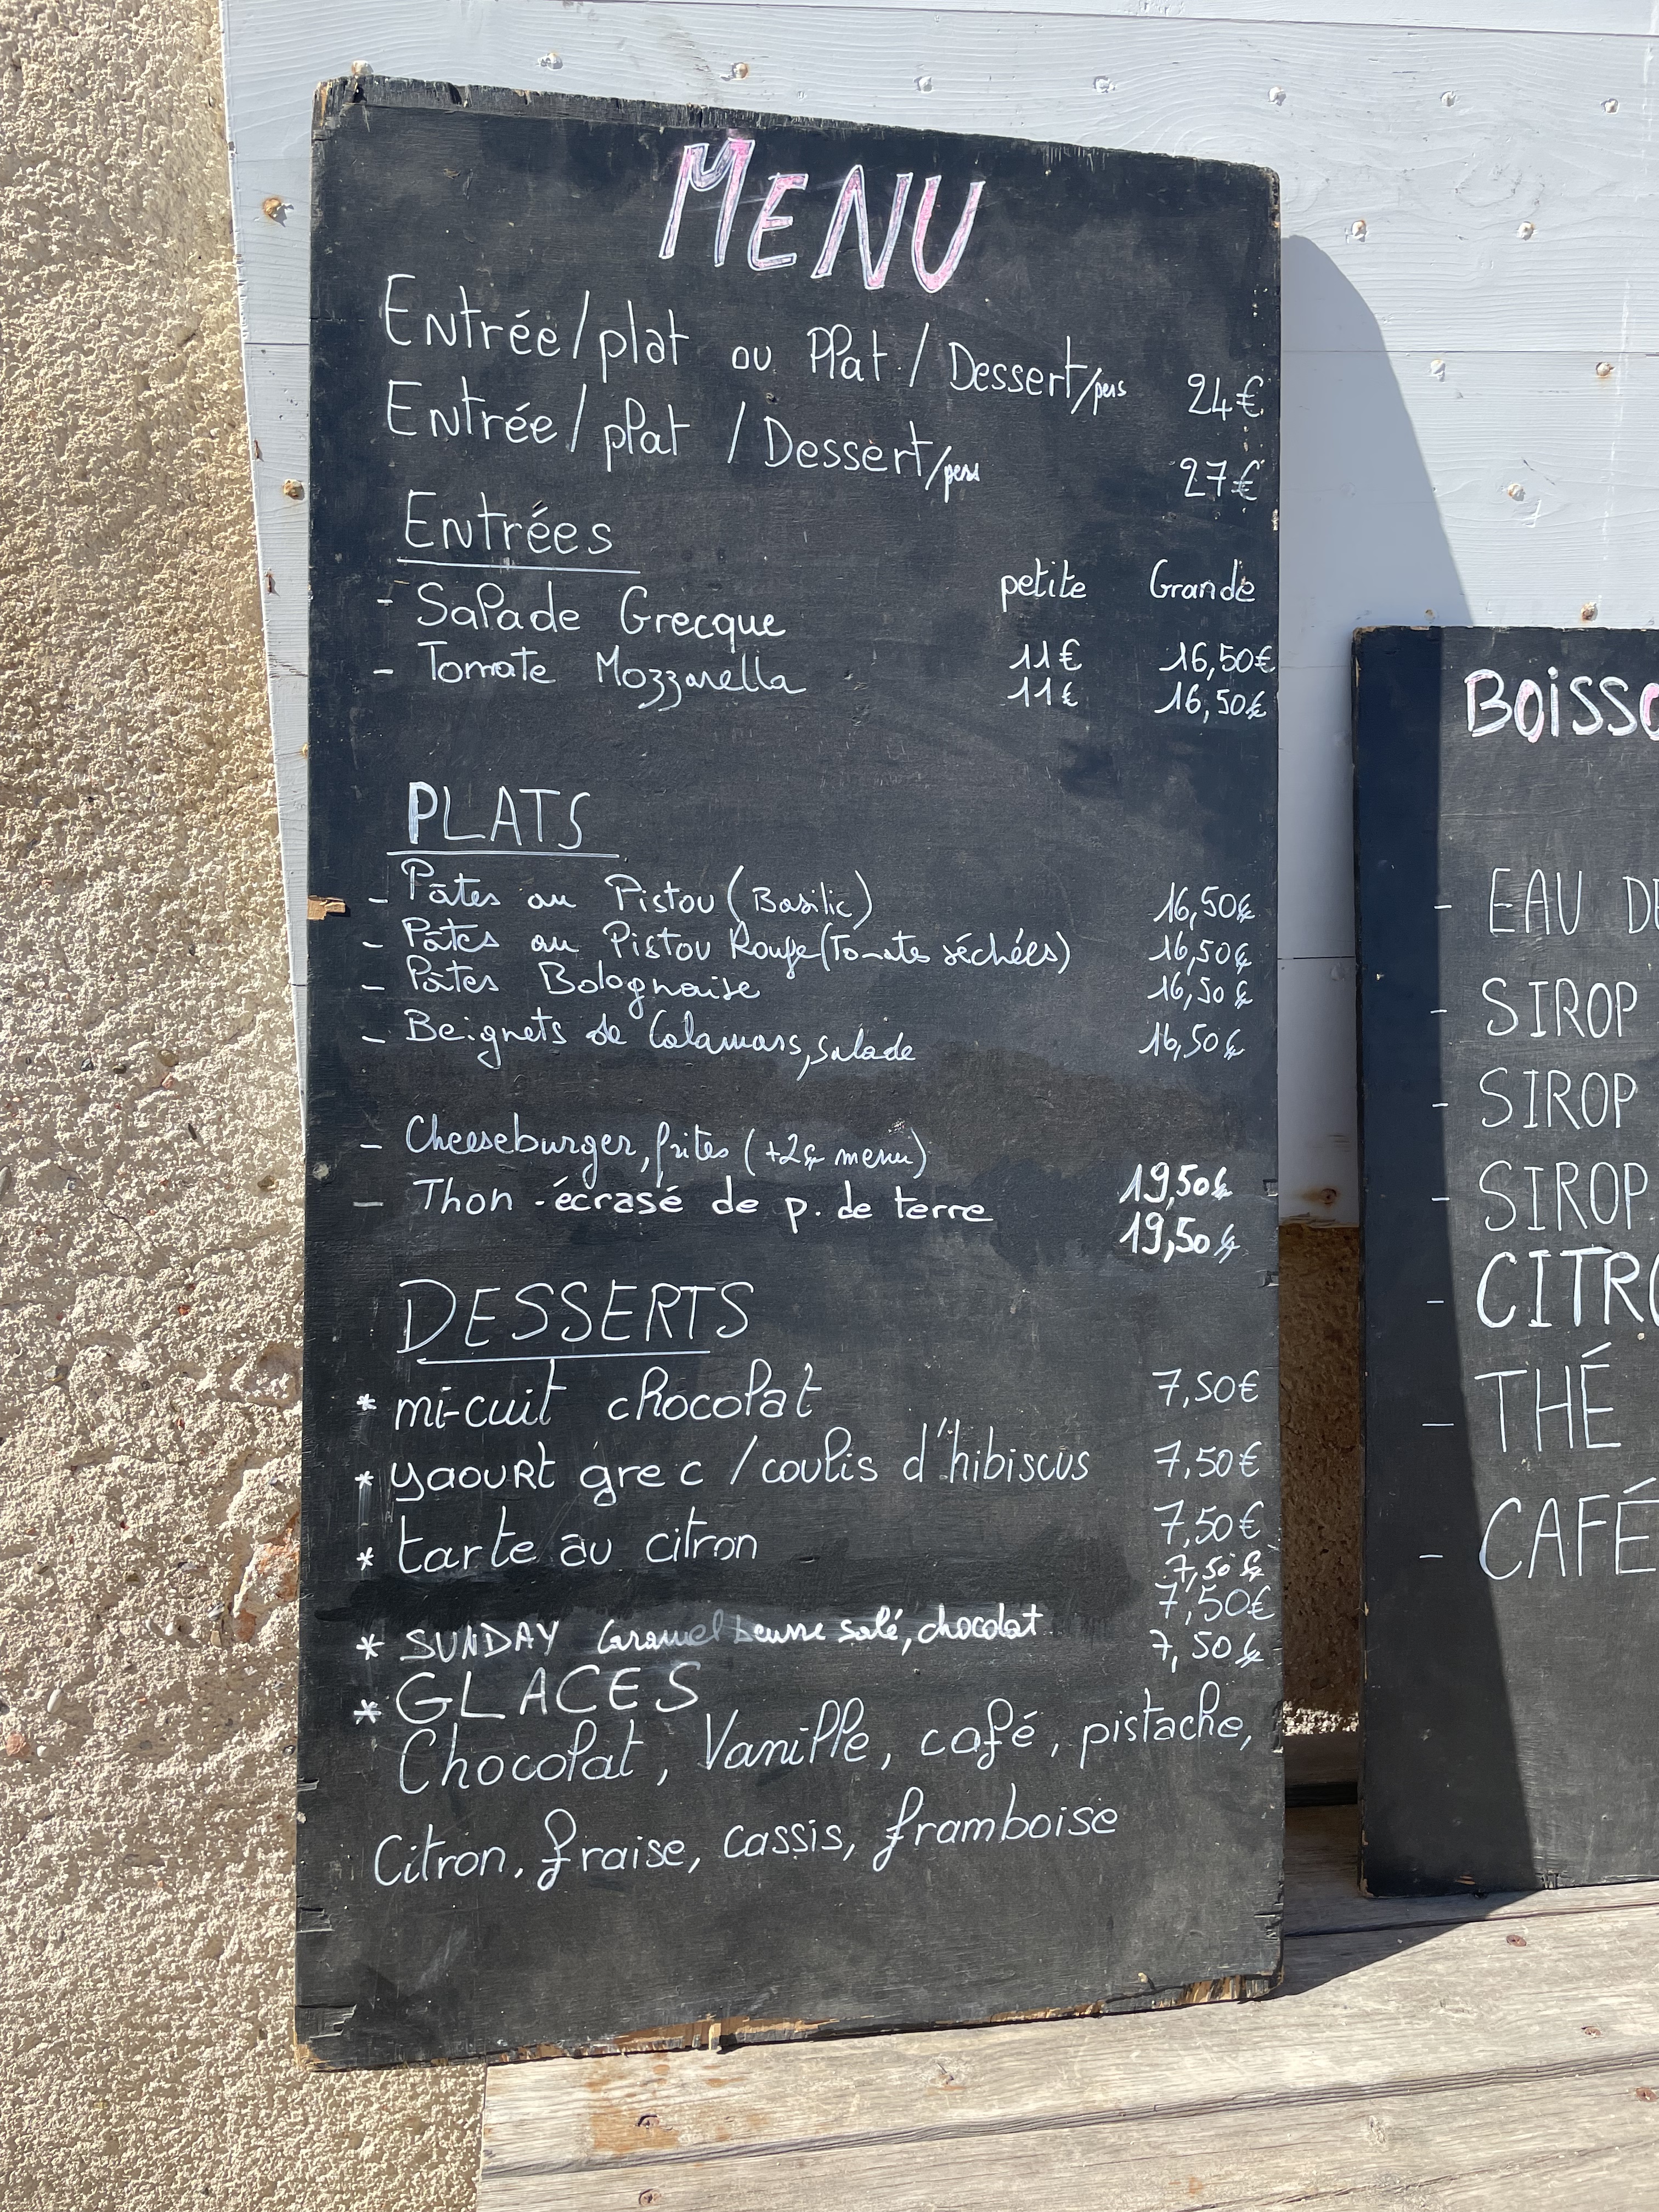 MENU
Entrée/plat ou Plat / Dessert/pers 24€
Entrée/plat / Dessert/pers 27€
Entrées
petite Grande
- Salade Grecque 11€ 16,50€
- Tomate Mozzarella 11€ 16,50€
PLATS
- Pâtes au Pistou (Basilic) 16,50€
- Pâtes au Pistou Rouge (Tomates séchées) 16,50€
- Pâtes Bolognaise 16,50€
- Beignets de Calamars, salade 16,50€
- Cheeseburger, frites (+2€ menu) 19,50€
- Thon - écrasé de p. de terre 19,50€
DESSERTS
* mi-cuit chocolat 7,50€
* yaourt grec / coulis d'hibiscus 7,50€
* tarte au citron 7,50€
7,50€
7,50€
* SUNDAY Caramel beurre salé, chocolat 7,50€
* GLACES
Chocolat, Vanille, café, pistache,
Citron, fraise, cassis, framboise
BOISSO
- EAU DE
- SIROP
- SIROP
- SIROP
- CITRO
- THÉ
- CAFÉ